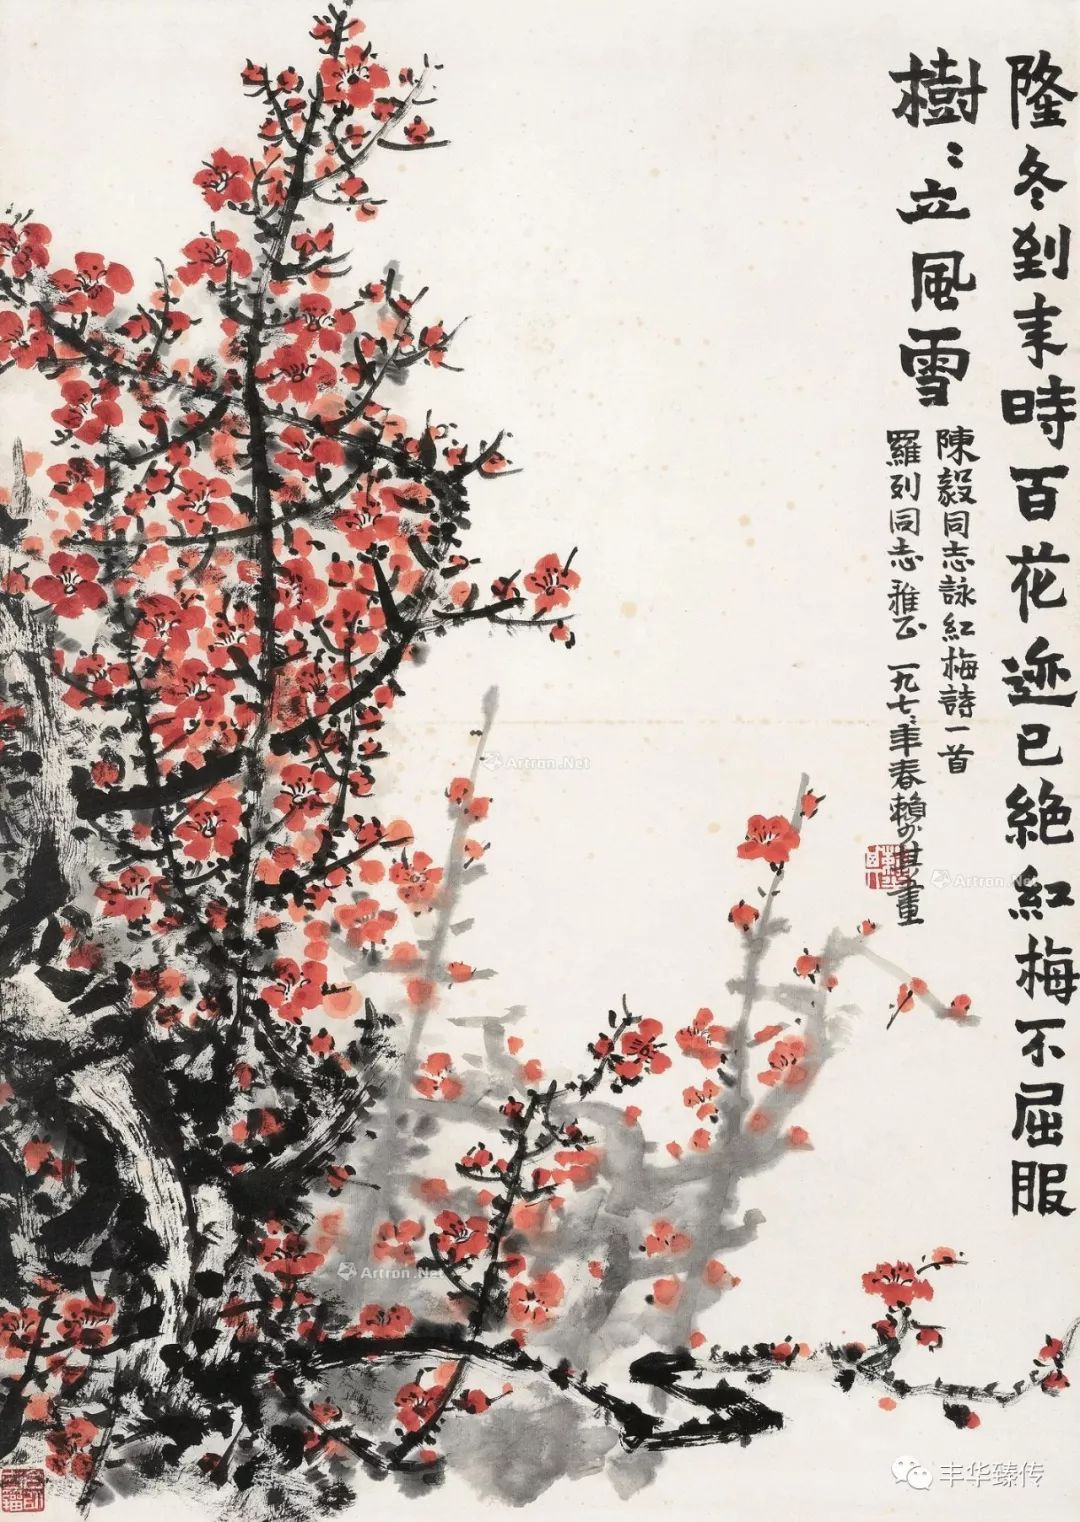 隆冬到来時百花迹已絶紅梅不屈服
樹〻立風雪
陳毅同志詠紅梅詩一首
羅列同志雅正 一九七〻年春賴少其畫
Artron.Net
Artron.Net
Artron.Net
丰华臻传